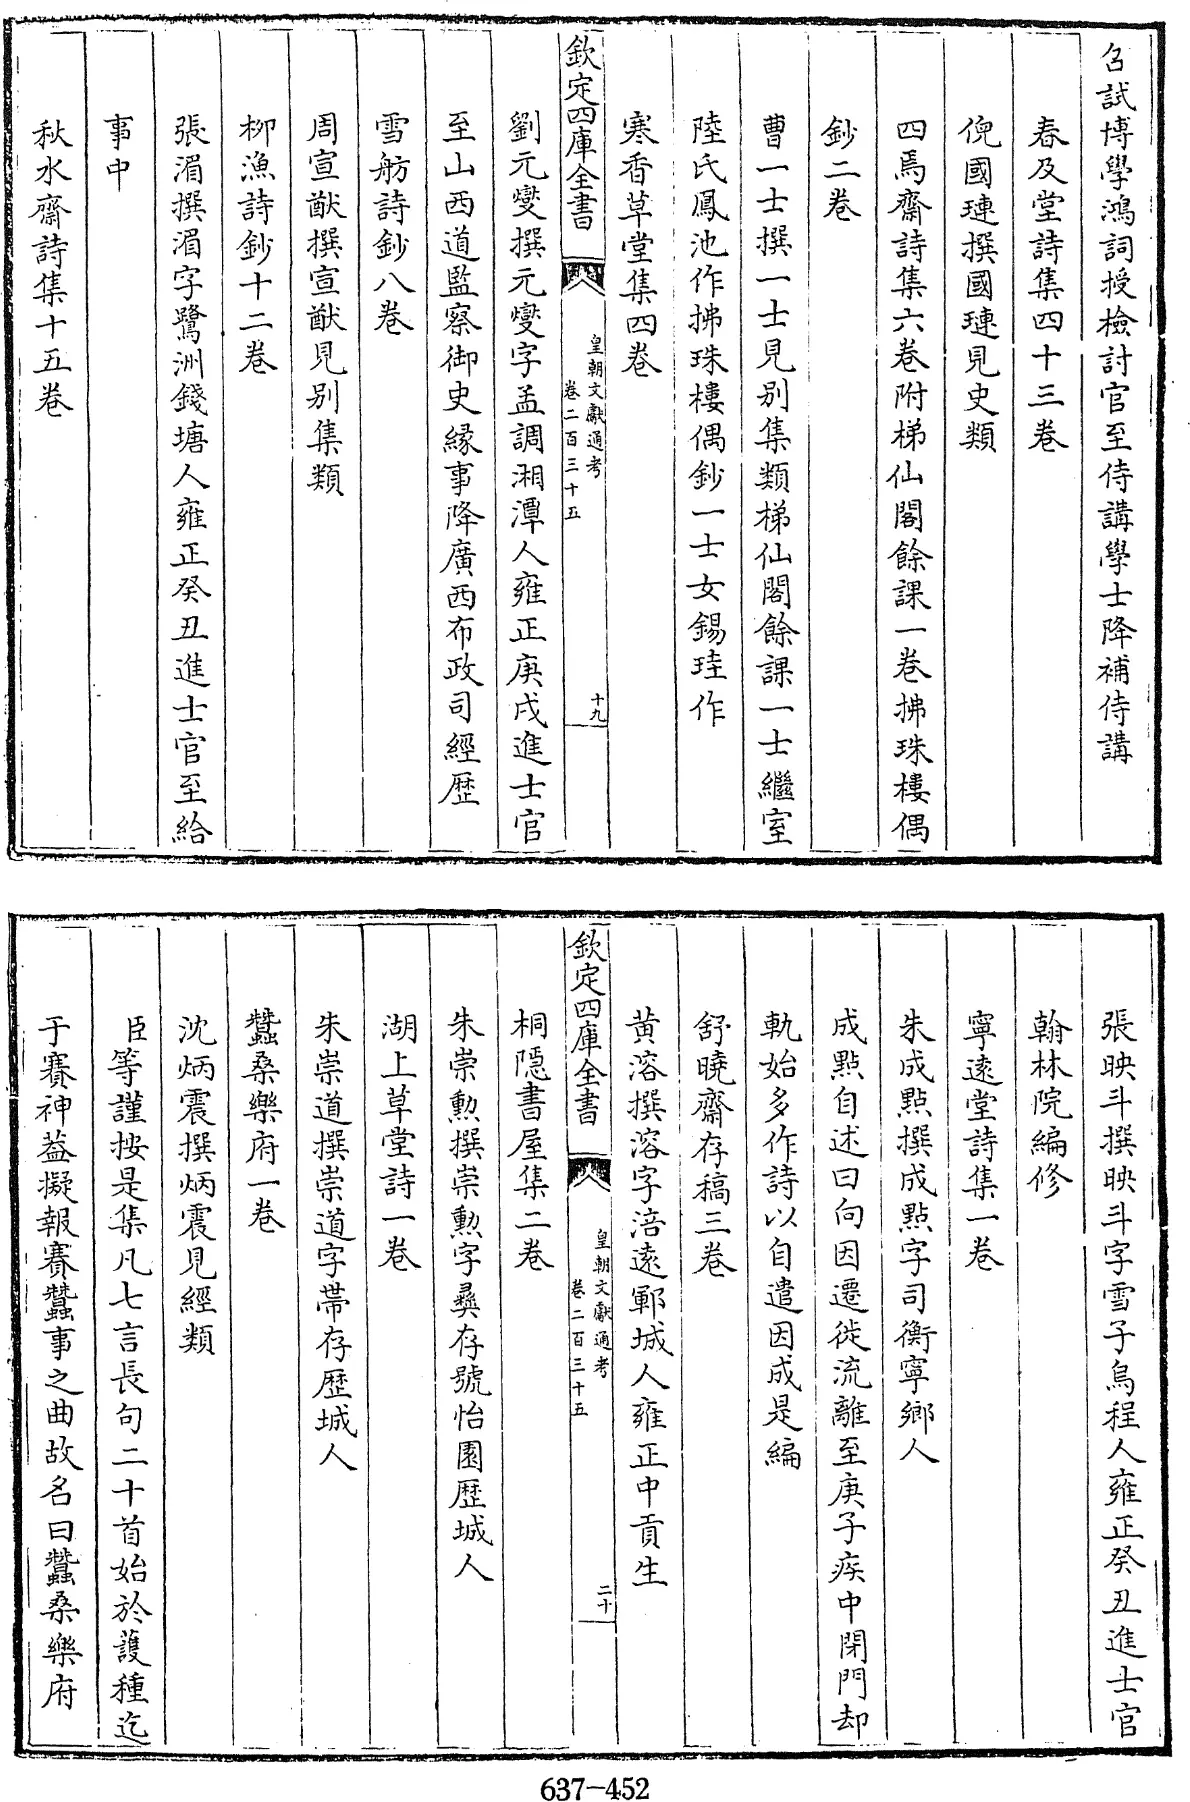 召試博學鴻詞授檢討官至侍講學士降補侍講
春及堂詩集四十三卷
倪國璉撰國璉見史類
四焉齋詩集六卷附梯仙閣餘課一卷拂珠樓偶
鈔二卷
曹一士撰一士見別集類梯仙閣餘課一士繼室
陸氏鳳池作拂珠樓偶鈔一士女錫珪作
寒香草堂集四卷
欽定四庫全書
皇朝文獻通考
卷二百三十五
十九
劉元燮撰元燮字孟調湘潭人雍正庚戌進士官
至山西道監察御史緣事降廣西布政司經歷
雪舫詩鈔八卷
周宣猷撰宣猷見別集類
柳漁詩鈔十二卷
張湄撰湄字鷺洲錢塘人雍正癸丑進士官至給
事中
秋水齋詩集十五卷
張映斗撰映斗字雪子烏程人雍正癸丑進士官
翰林院編修
寧遠堂詩集一卷
朱成點撰成點字司衡寧鄉人
成點自述曰向因遷徙流離至庚子疾中閉門却
軌始多作詩以自遣因成是編
舒曉齋存稿三卷
黄溶撰溶字涪遠鄆城人雍正中貢生
欽定四庫全書
皇朝文獻通考
卷二百三十五
二十
桐隱書屋集二卷
朱崇勲撰崇勲字彝存號怡園歷城人
湖上草堂詩一卷
朱崇道撰崇道字帶存歷城人
蠶桑樂府一卷
沈炳震撰炳震見經類
臣等謹按是集凡七言長句二十首始於護種迄
于賽神葢擬報賽蠶事之曲故名曰蠶桑樂府
637-452